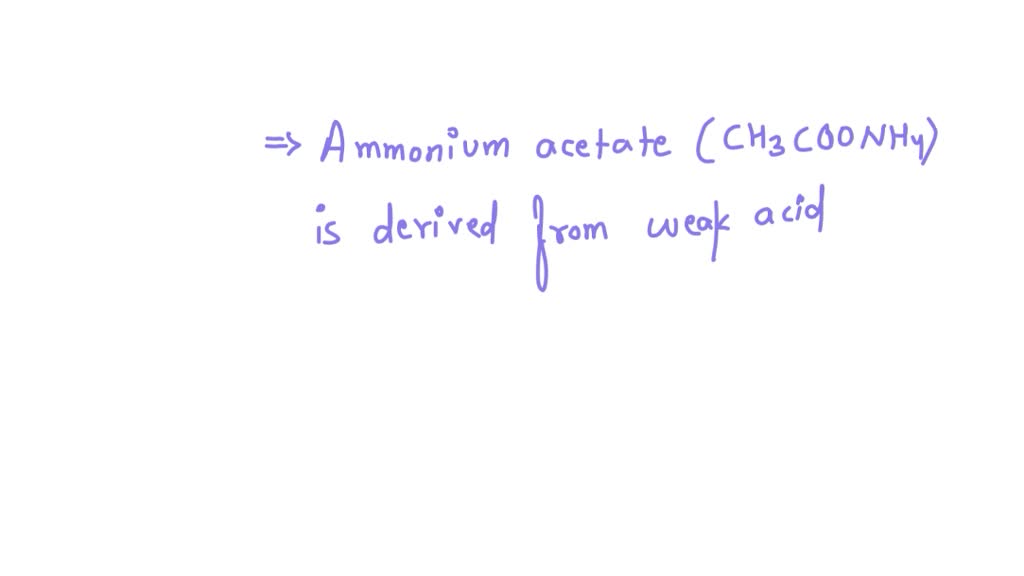 => Ammonium acetate (CH3COONH4)
is derived from weak acid